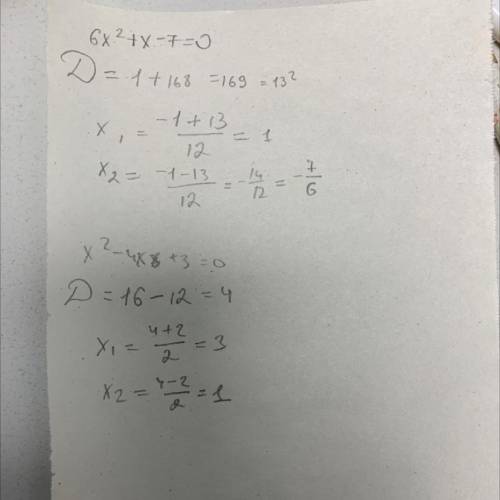 6x²+x-7=0
D=1+168=169=13²
x₁=\frac{-1+13}{12}=1
x₂=\frac{-1-13}{12}=-\frac{14}{12}=-\frac{7}{6}
x²-4x+3=0
D=16-12=4
x₁=\frac{4+2}{2}=3
x₂=\frac{4-2}{2}=1